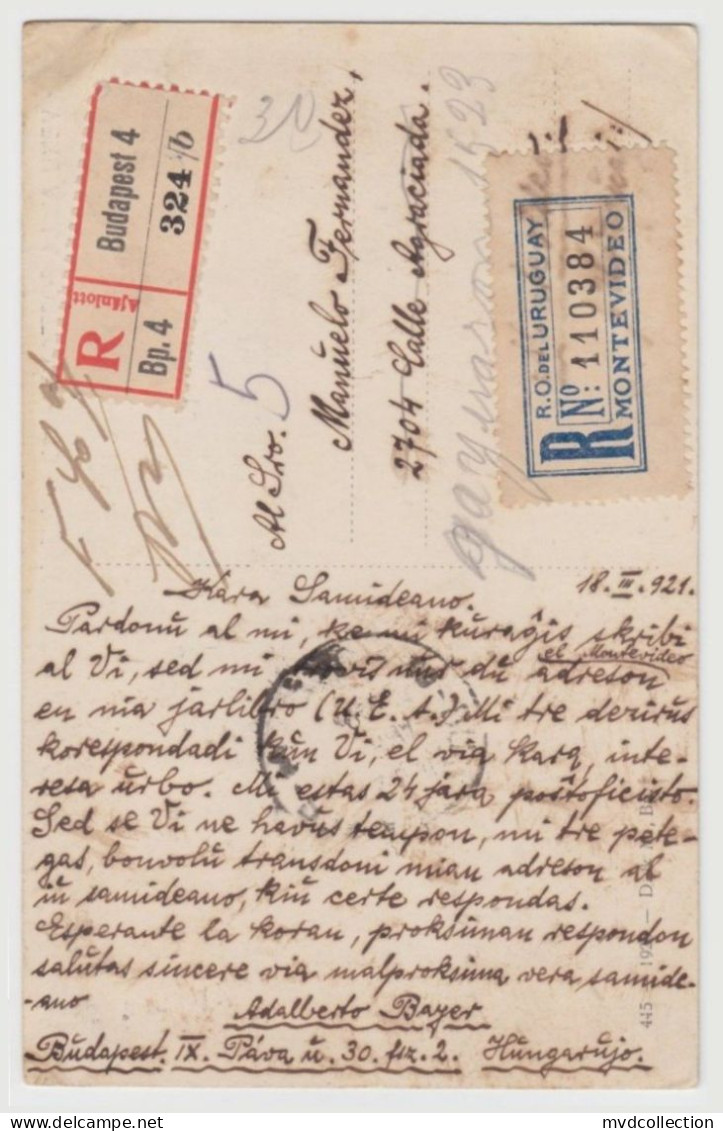 Budapest 4
324/b
R
Ajánlott
Bp. 4
5
Al Sro.
Manuelo Fernandez,
2704 Calle Agraciada.
R.O. DEL URUGUAY
R Nº: 110384
MONTEVIDEO
Kara Samideano. 18. III. 921.
Pardonu al mi, ke mi kuraĝis skribi
al Vi, sed mi nur du adreson el Montevideo
en nia jarlibro (U. E. A.) Mi tre dezirus
korespondadi kun Vi, el via kara, inte-
resa urbo. Mi estas 24 jara poŝtoficisto.
Sed se Vi ne havus tempon, mi tre pete-
gas, bonvolu transdoni mian adreson al
iu samideano, kiu certe respondas.
Esperante la koran, proksiman respondon
salutas sincere via malproksima vera samide-
-ano Adalberto Bayer
Budapest. IX. Páva u. 30. fsz. 2. Hungarujo.
445
mvdcollection